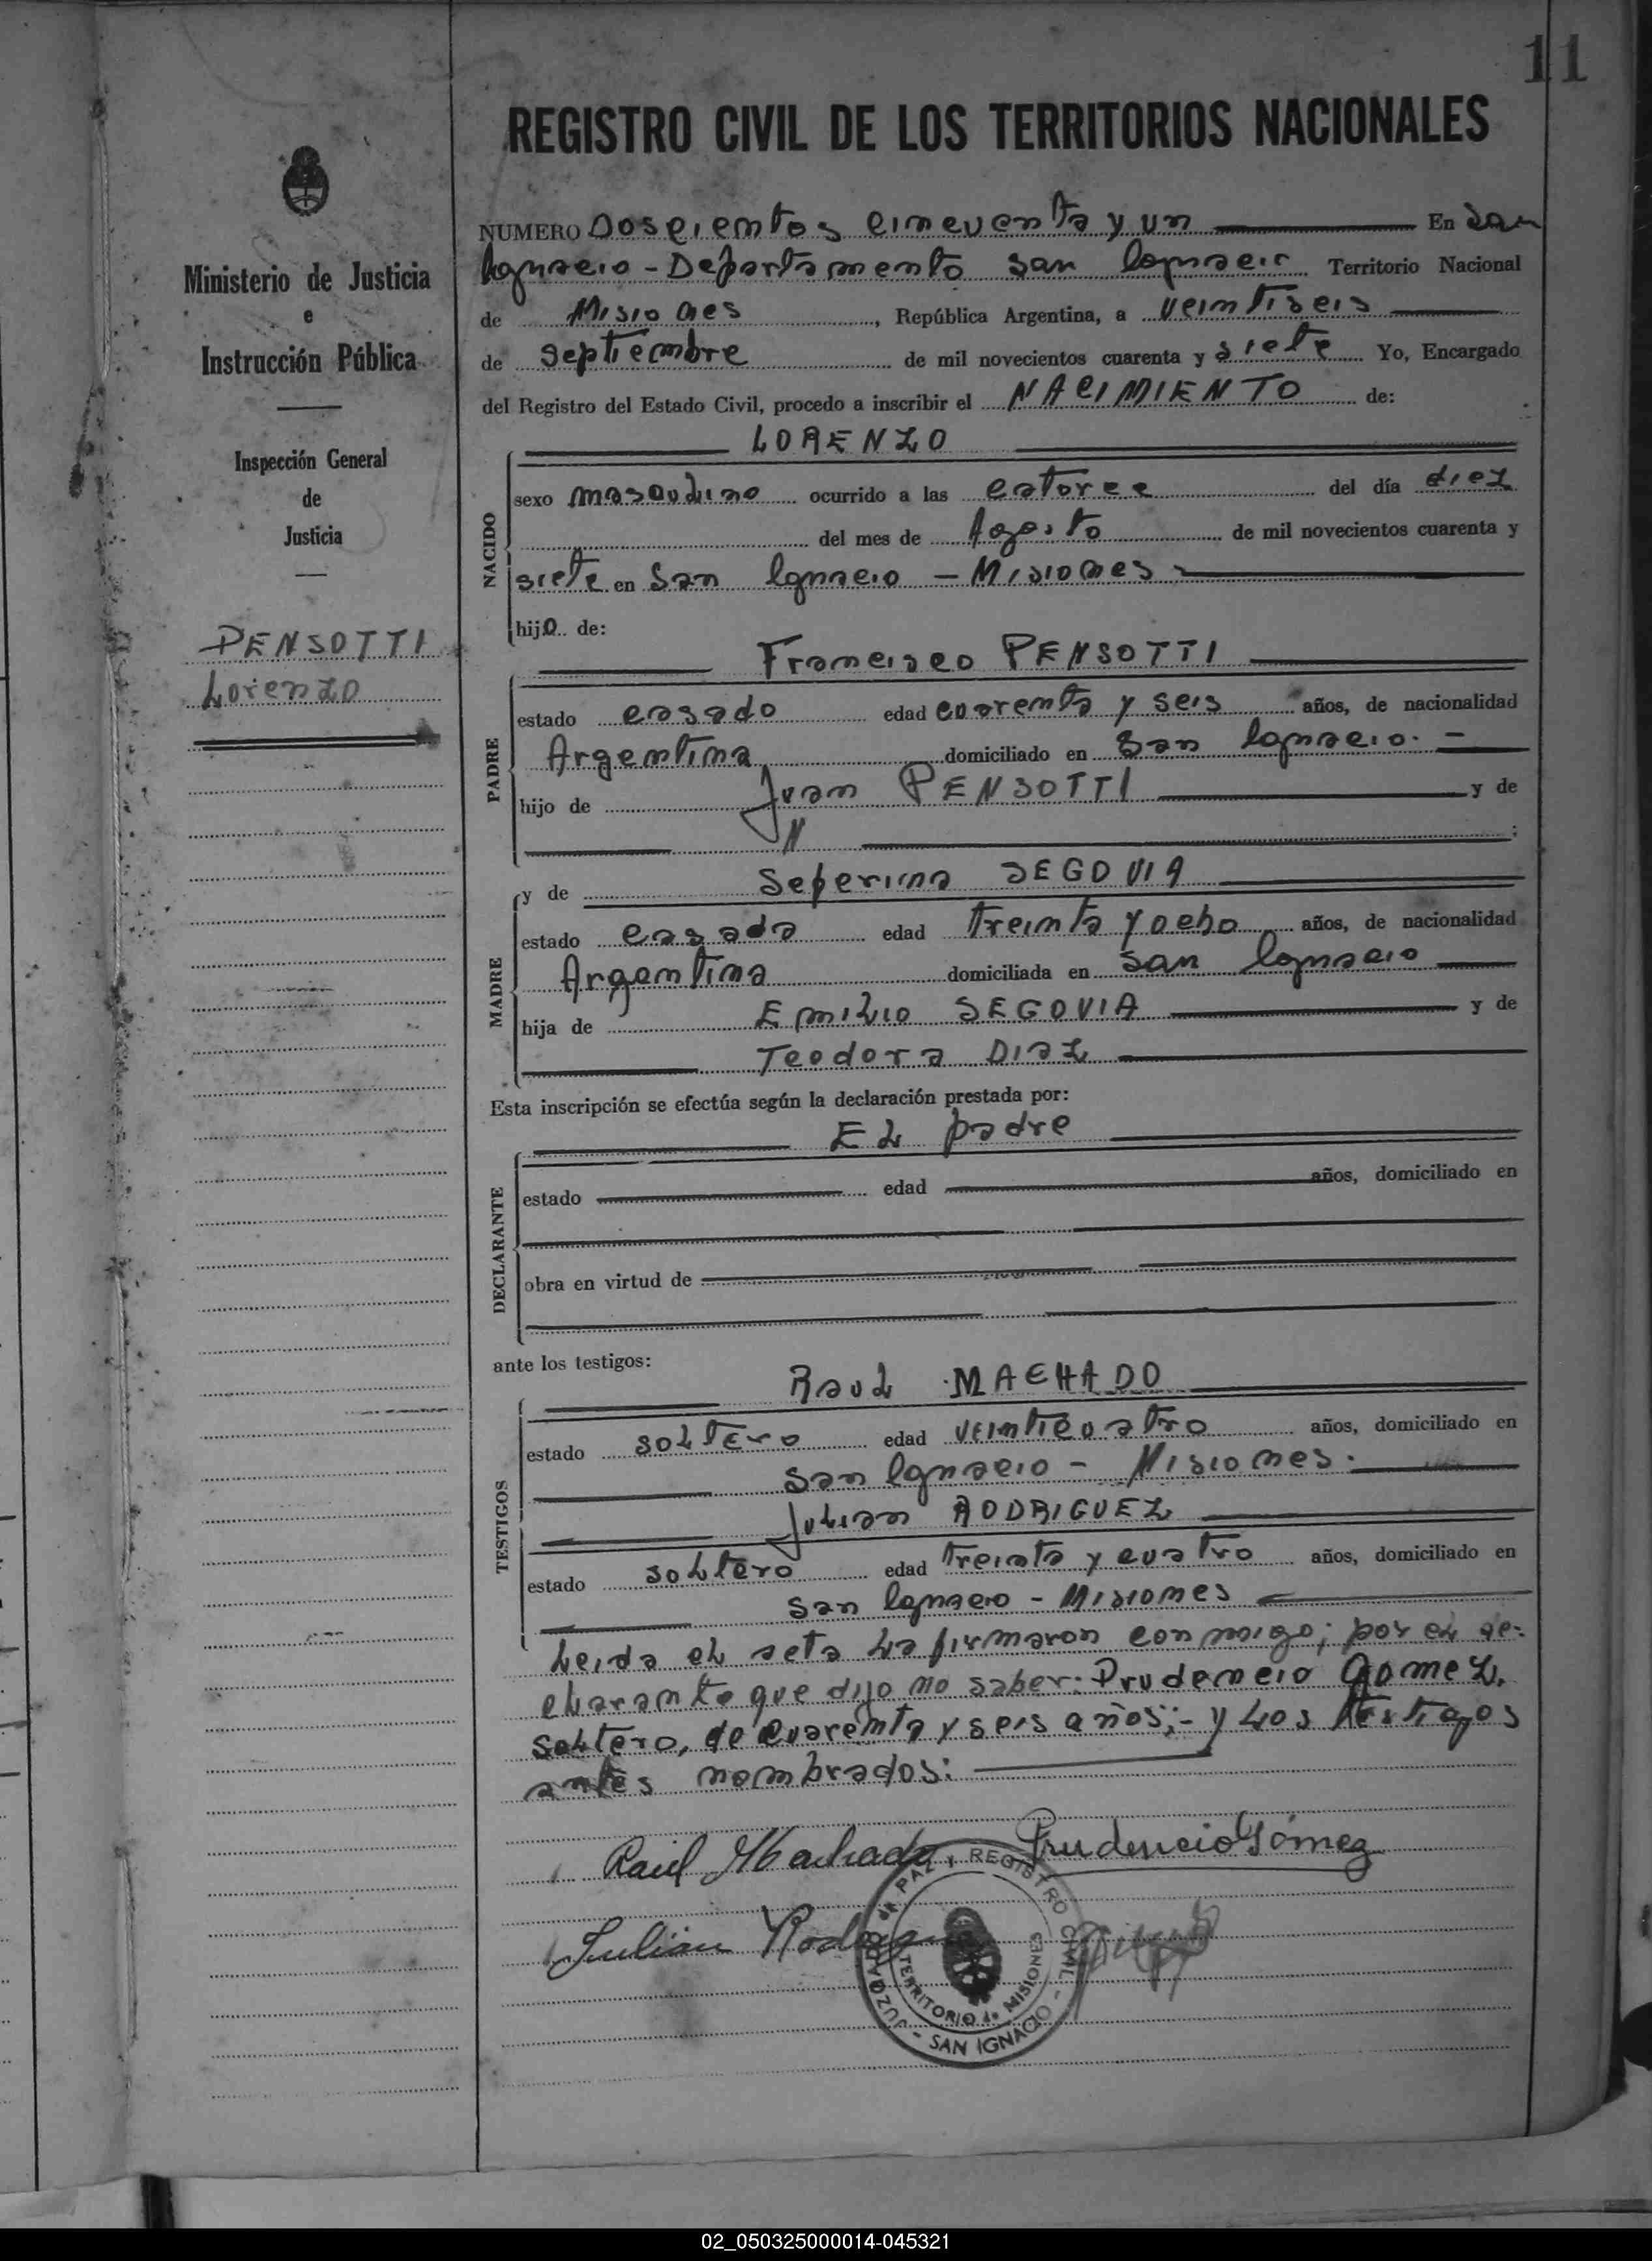 11
REGISTRO CIVIL DE LOS TERRITORIOS NACIONALES
Ministerio de Justicia
e
Instrucción Pública
Inspección General
de
Justicia
PENSOTTI
Lorenzo
NUMERO Doscientos cincuenta y un En San
Ignacio - Departamento San Ignacio Territorio Nacional
de Misiones, República Argentina, a veintiseis
de septiembre de mil novecientos cuarenta y siete Yo, Encargado
del Registro del Estado Civil, procedo a inscribir el NACIMIENTO de:
NACIDO
LORENZO
sexo masculino ocurrido a las catorce del día diez
del mes de Agosto de mil novecientos cuarenta y
siete en San Ignacio - Misiones
hijo de:
PADRE
Francisco PENSOTTI
estado casado edad cuarenta y seis años, de nacionalidad
Argentina domiciliado en San Ignacio. -
hijo de Juan PENSOTTI y de
N ;
MADRE
y de Seferina SEGOVIA
estado casada edad treinta y ocho años, de nacionalidad
Argentina domiciliada en San Ignacio
hija de Emilio SEGOVIA y de
Teodora Diaz
Esta inscripción se efectúa según la declaración prestada por:
DECLARANTE
El padre
estado edad años, domiciliado en
obra en virtud de
ante los testigos:
TESTIGOS
Raul MACHADO
estado soltero edad veinticuatro años, domiciliado en
San Ignacio - Misiones.
Julian RODRIGUEZ
estado soltero edad treinta y cuatro años, domiciliado en
San Ignacio - Misiones
Leida el acta la firmaron conmigo; por el de-
clarante que dijo no saber: Prudencio Gomez,
soltero, de cuarenta y seis años;- y los testigos
antes nombrados:
Raúl Machado Prudencio Gómez
Julian
JUZGADO de PAZ y REGISTRO CIVIL - SAN IGNACIO -
TERRITORIO de MISIONES
02_050325000014-045321